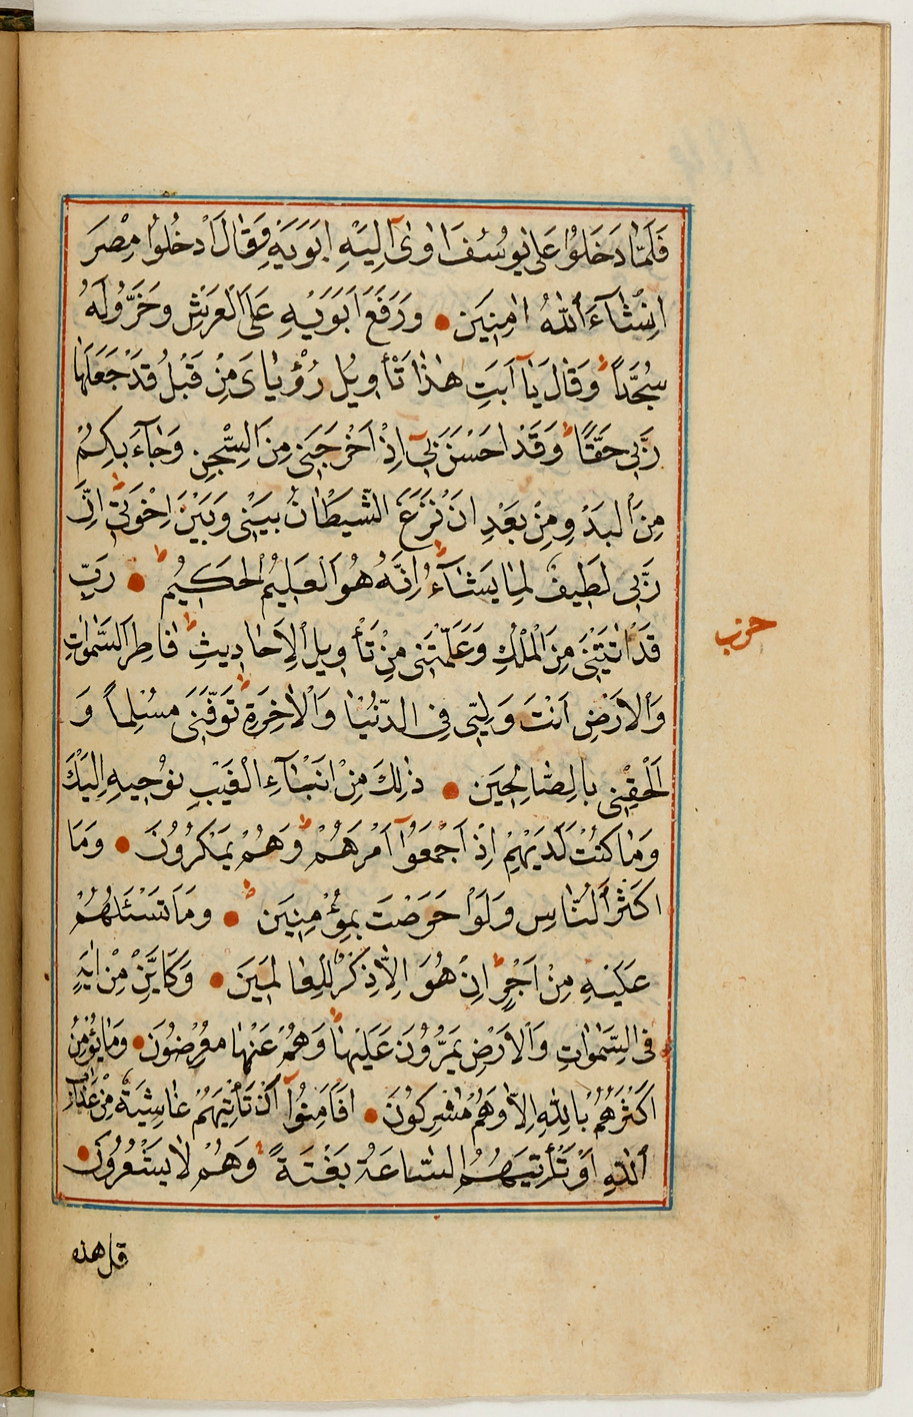 فَلَمَّا دَخَلُوا عَلٰى يُوسُفَ اٰوٰىٓ اِلَيْهِ اَبَوَيْهِ وَقَالَ ادْخُلُوا مِصْرَ
اِنْ شَآءَ اللّٰهُ اٰمِنِينَ وَرَفَعَ اَبَوَيْهِ عَلَى الْعَرْشِ وَخَرُّوا لَهُ
سُجَّدًا ط وَقَالَ يَآ اَبَتِ هٰذَا تَأْوِيلُ رُؤْيَاىَ مِنْ قَبْلُ قَدْ جَعَلَهَا
رَبِّى حَقًّا ط وَقَدْ اَحْسَنَ بِىٓ اِذْ اَخْرَجَنِى مِنَ السِّجْنِ وَجَآءَ بِكُمْ
مِنَ الْبَدْوِ مِنْ بَعْدِ اَنْ نَزَغَ الشَّيْطَانُ بَيْنِى وَبَيْنَ اِخْوَتِى ط اِنَّ
رَبِّى لَطِيفٌ لِمَا يَشَآءُ ط اِنَّهُ هُوَ الْعَلِيمُ الْحَكِيمُ ط رَبِّ
قَدْ اٰتَيْتَنِى مِنَ الْمُلْكِ وَعَلَّمْتَنِى مِنْ تَأْوِيلِ الْاَحَادِيثِ ط فَاطِرَ السَّمٰوَاتِ
وَالْاَرْضِ اَنْتَ وَلِيِّى فِى الدُّنْيَا وَالْاٰخِرَةِ ط تَوَفَّنِى مُسْلِمًا وَ
اَلْحِقْنِى بِالصَّالِحِينَ ذٰلِكَ مِنْ اَنْبَآءِ الْغَيْبِ نُوحِيهِ اِلَيْكَ
وَمَا كُنْتَ لَدَيْهِمْ اِذْ اَجْمَعُوٓا اَمْرَهُمْ ط وَهُمْ يَمْكُرُونَ وَمَا
اَكْثَرُ النَّاسِ وَلَوْ حَرَصْتَ بِمُؤْمِنِينَ ط وَمَا تَسْئَلُهُمْ
عَلَيْهِ مِنْ اَجْرٍ ط اِنْ هُوَ اِلَّا ذِكْرٌ لِلْعَالَمِينَ وَكَاَيِّنْ مِنْ اٰيَةٍ
فِى السَّمٰوَاتِ وَالْاَرْضِ يَمُرُّونَ عَلَيْهَا ط وَهُمْ عَنْهَا مُعْرِضُونَ وَمَا يُؤْمِنُ
اَكْثَرُهُمْ بِاللّٰهِ اِلَّا وَهُمْ مُشْرِكُونَ اَفَاَمِنُوٓا اَنْ تَأْتِيَهُمْ غَاشِيَةٌ مِنْ عَذَابِ
اللّٰهِ اَوْ تَأْتِيَهُمُ السَّاعَةُ بَغْتَةً وَهُمْ لَا يَشْعُرُونَ
حزب
قل هذه